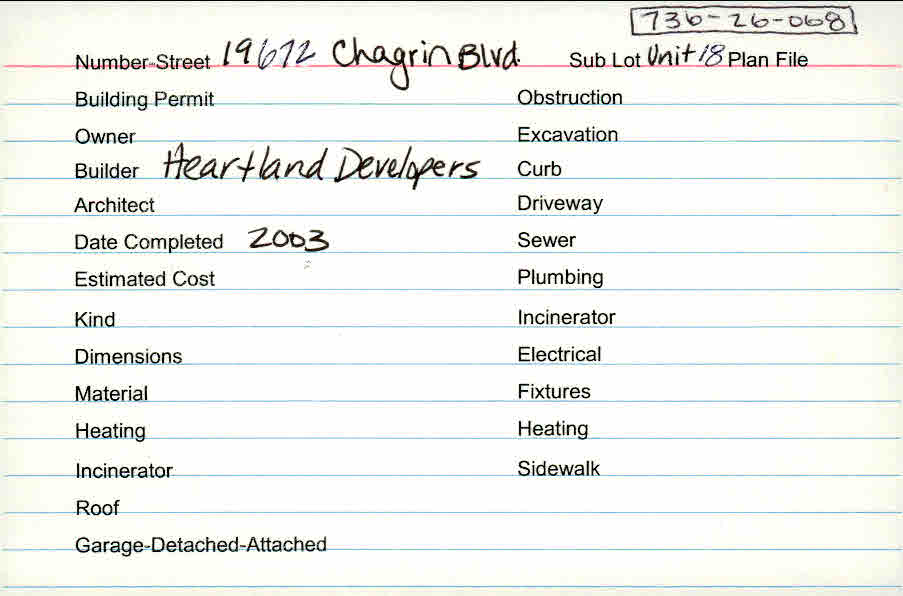 736-26-068
Number-Street 19672 Chagrin Blvd. Sub Lot Unit 18 Plan File
Building Permit Obstruction
Owner Excavation
Builder Heartland Developers Curb
Architect Driveway
Date Completed 2003 Sewer
Estimated Cost Plumbing
Kind Incinerator
Dimensions Electrical
Material Fixtures
Heating Heating
Incinerator Sidewalk
Roof
Garage-Detached-Attached